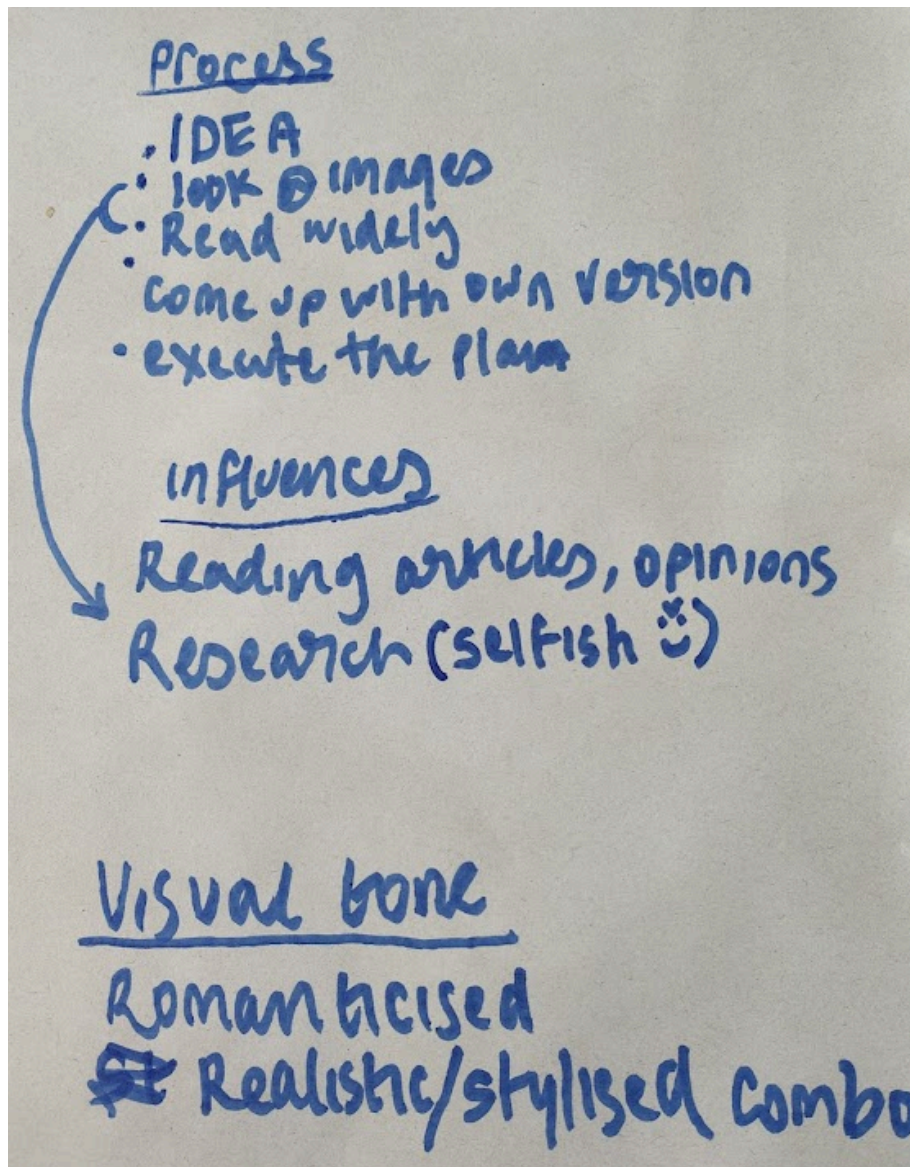 Process
• IDEA
• look @ images
• Read widely
•
come up with own version
• execute the plan
influences
Reading articles, opinions
Research (selfish )
Visual tone
Romanticised
Realistic/stylised combo